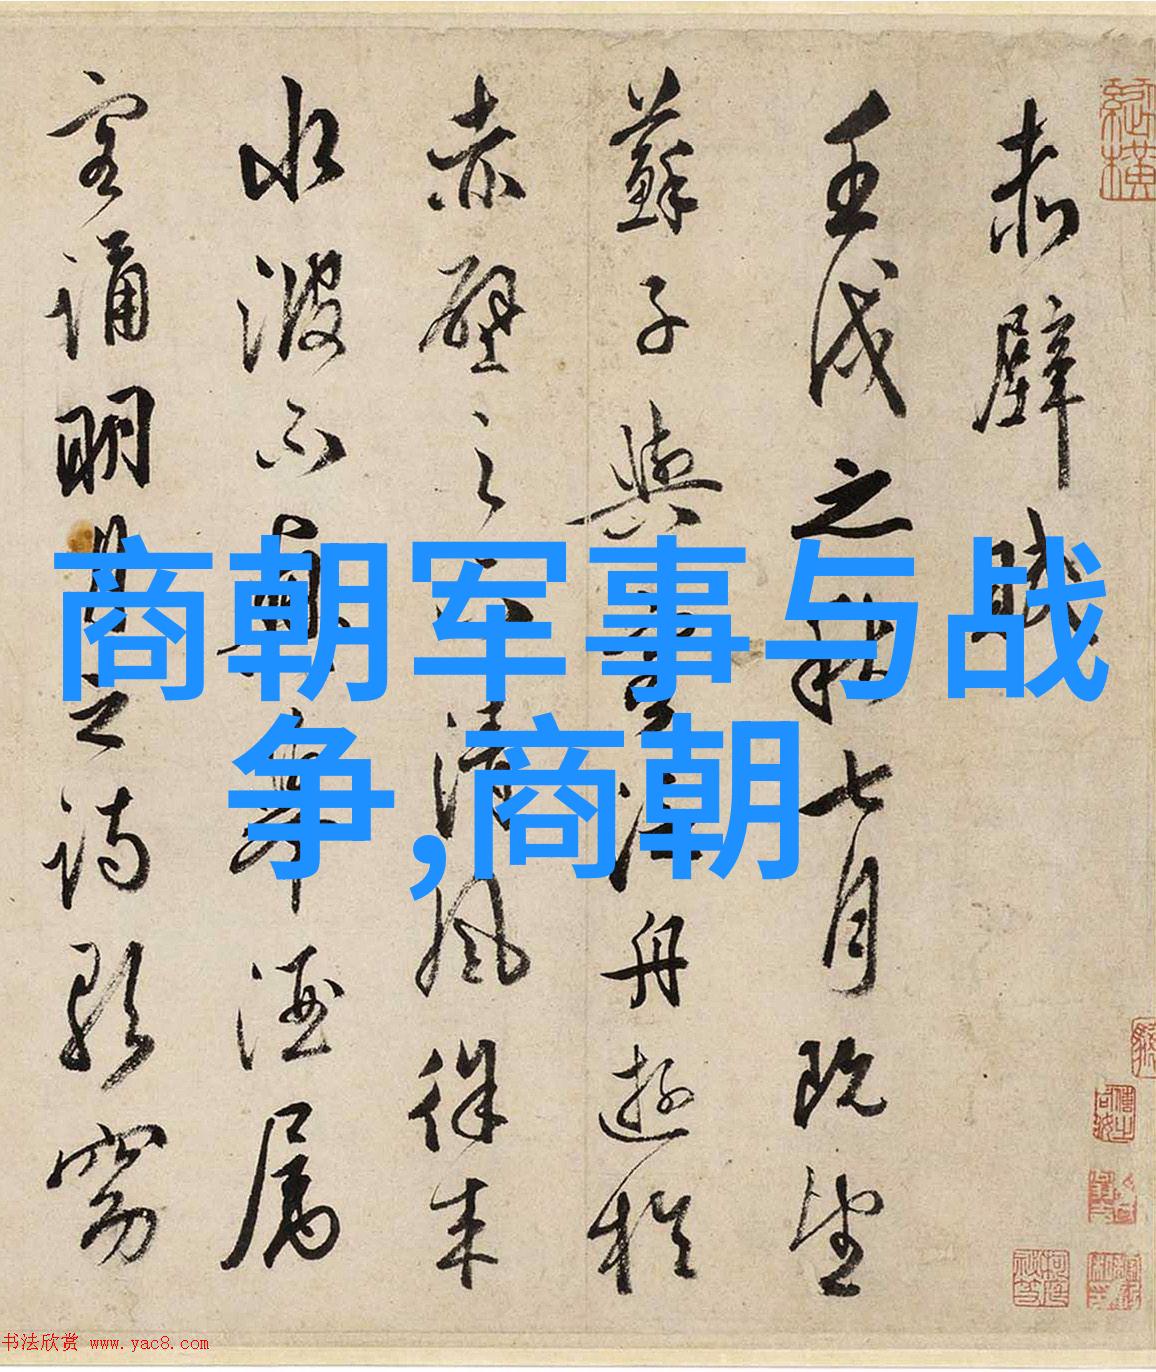 赤壁賦
壬戌之秋七月既望
蘇子與客泛舟遊於
赤壁之下清風徐来
水波不興舉酒属
客誦明月之詩歌窈
商朝军事与战
争,商朝
书法欣赏 www.yac8.com